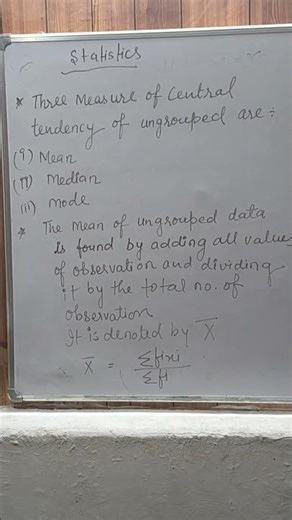 Statistics
* Three Measure of Central
tendency of ungrouped are :-
(i) Mean
(ii) Median
(iii) mode
* The Mean of ungrouped data
is found by adding all values
of observation and dividing
it by the total no. of
observation
It is denoted by X̅
X̅ = Σfixi / Σfi